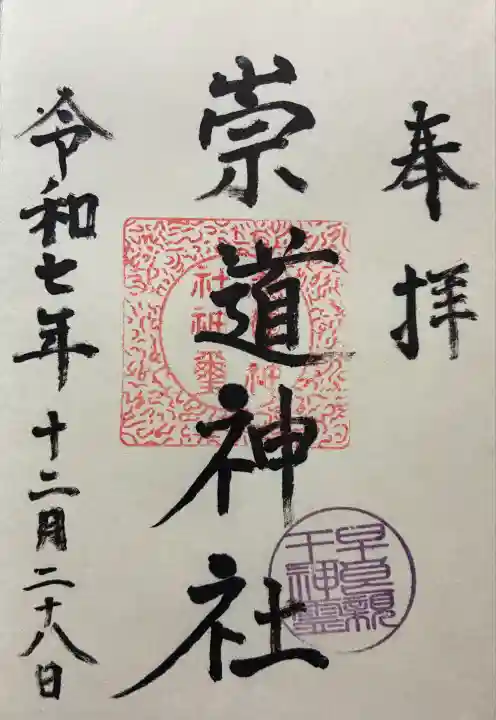 奉拝
崇道神社
早良親
王神霊
社神璽
令和七年十二月二十八日